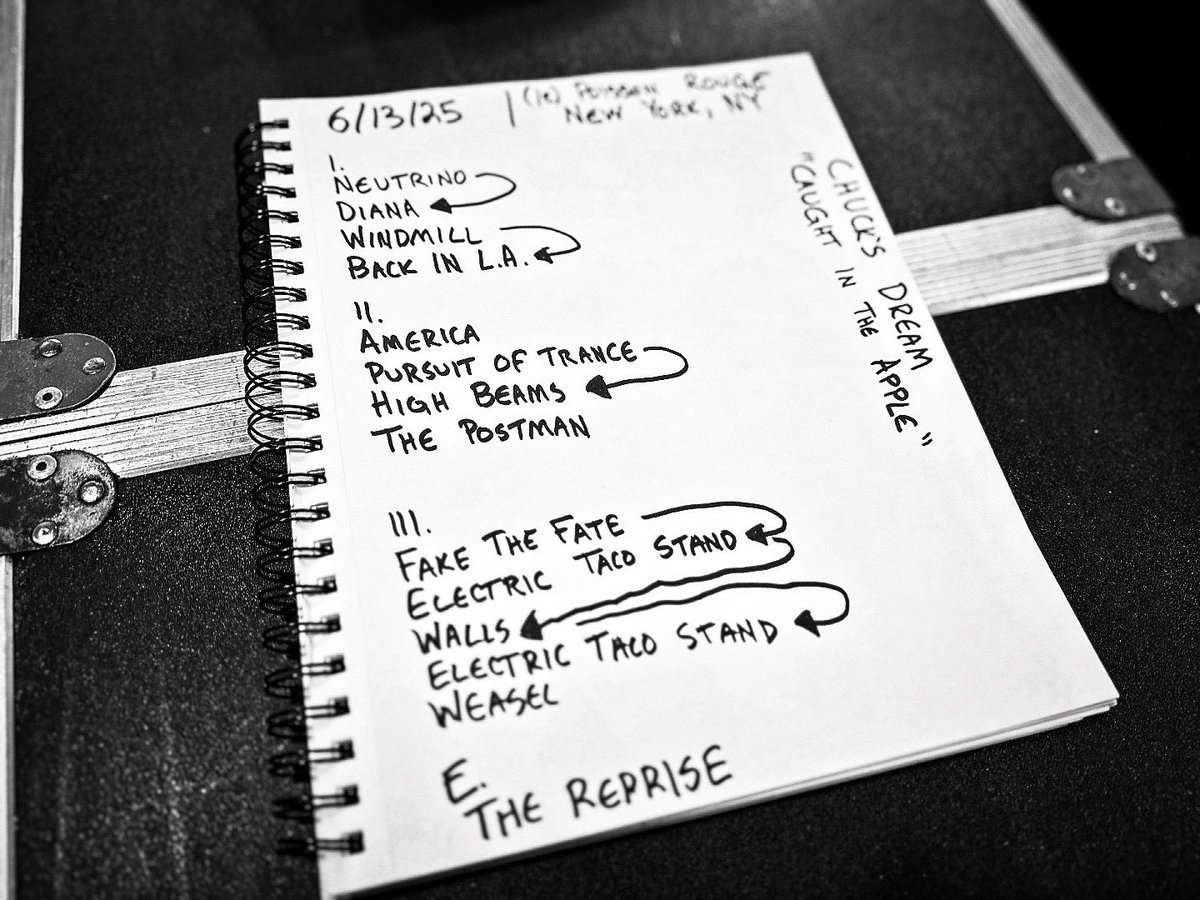 6/13/25 | (le) Poisson Rouge
New York, NY
I.
NEUTRINO
DIANA
WINDMILL
BACK IN L.A.
II.
AMERICA
PURSUIT OF TRANCE
HIGH BEAMS
THE POSTMAN
III.
FAKE THE FATE
ELECTRIC TACO STAND
WALLS
ELECTRIC TACO STAND
WEASEL
E.
THE REPRISE
CHUCK'S DREAM
"CAUGHT IN THE APPLE"